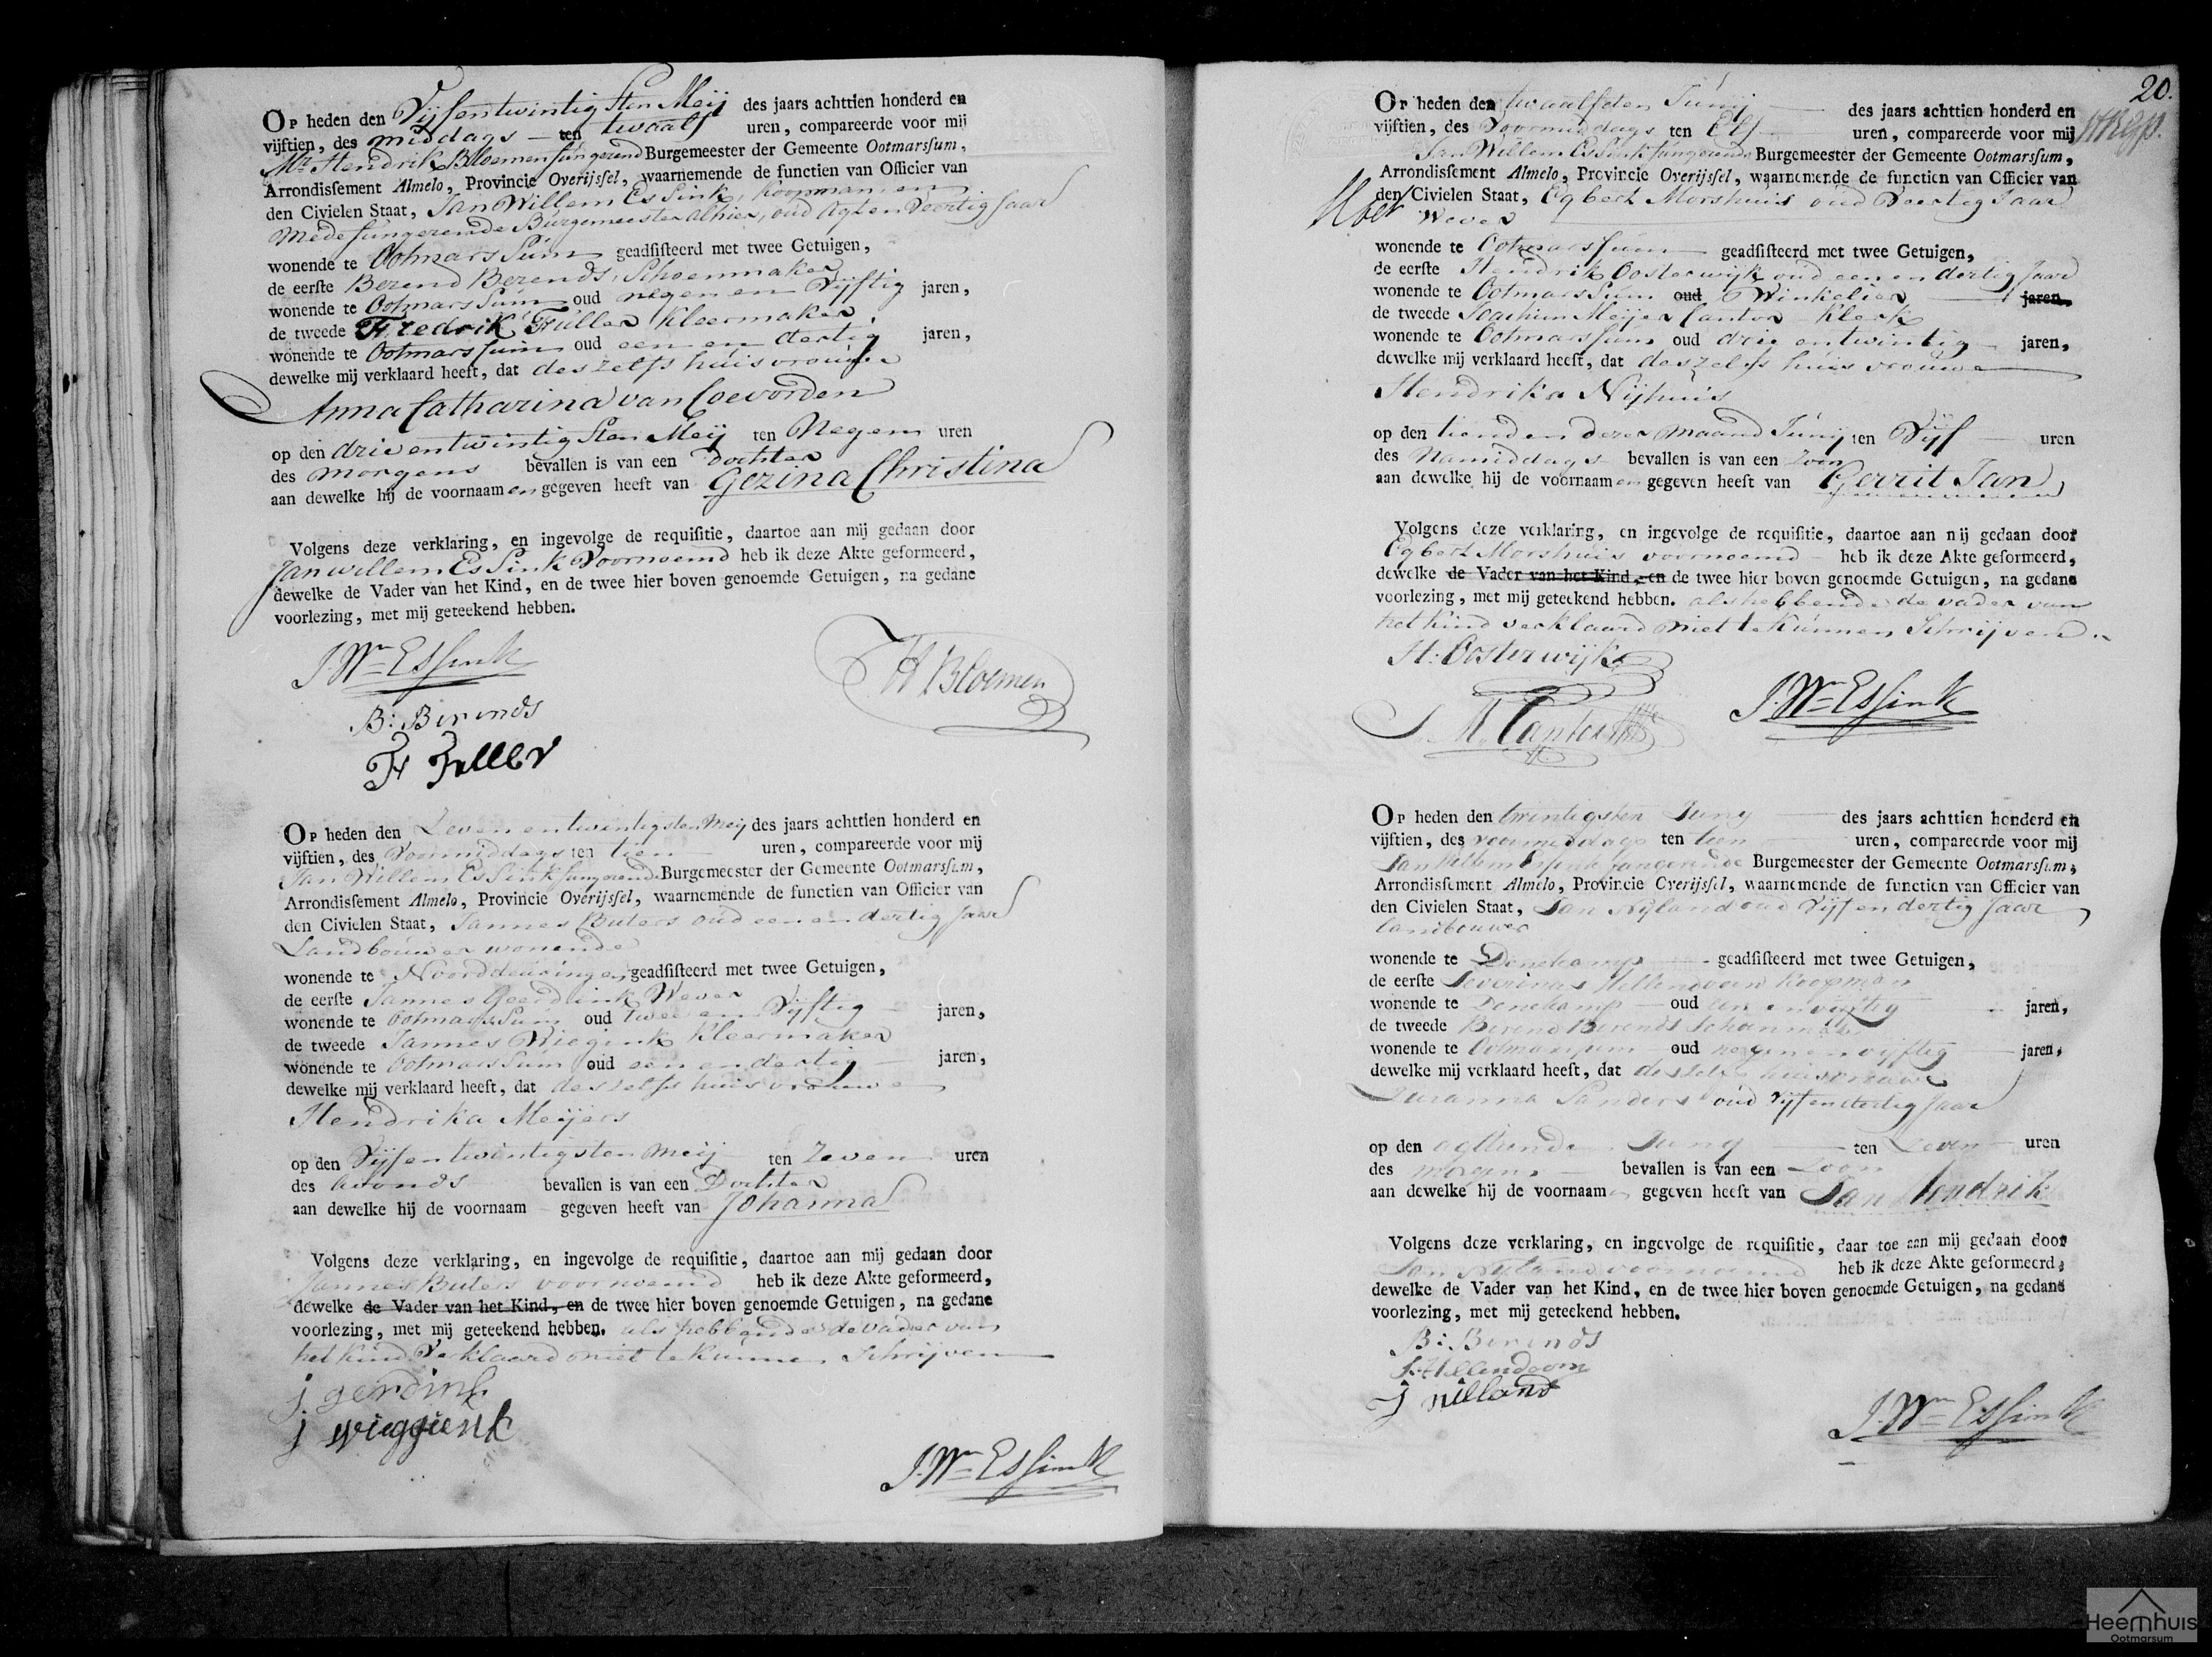 Op heden den Vijfentwintigsten Meij des jaars achttien honderd en
vijftien, des middags ten twaalf uren, compareerde voor mij
Mr Hendrik Bloemen fungerend Burgemeester der Gemeente Ootmarsum,
Arrondissement Almelo, Provincie Overijssel, waarnemende de functien van Officier van
den Civielen Staat, Jan Willem Essink, Koopman en
Mede fungerende Burgemeester alhier, oud Agt en Veertig Jaar
wonende te Ootmarssum geadsisteerd met twee Getuigen,
de eerste Berend Berends, Schoenmaker
wonende te Ootmarssum oud negen en Vijftig jaren,
de tweede Fredrik Fuller Kleermaker
wonende te Ootmarssum oud een en dertig jaren,
dewelke mij verklaard heeft, dat deszelfs huisvrouwe
Anna Catharina van Coevorden
op den drie entwintigsten Meij ten Negen uren
des morgens bevallen is van een Dochter
aan dewelke hij de voornaamen gegeven heeft van Gezina Christina
Volgens deze verklaring, en ingevolge de requisitie, daartoe aan mij gedaan door
Jan willem Essink Voornoemd heb ik deze Akte geformeerd,
dewelke de Vader van het Kind, en de twee hier boven genoemde Getuigen, na gedane
voorlezing, met mij geteekend hebben.
J. Wm Essink
H Bloemen
B: Berends
F Fuller
Op heden den Zeven entwintigsten Meij des jaars achttien honderd en
vijftien, des Voormiddags ten tien uren, compareerde voor mij
Jan Willem Essink fungerend Burgemeester der Gemeente Ootmarssum,
Arrondissement Almelo, Provincie Overijssel, waarnemende de functien van Officier van
den Civielen Staat, Jannes Buters oud een en dertig Jaar
Landbouwer wonende
wonende te Noorddeuringen geadsisteerd met twee Getuigen,
de eerste Jannes Geerdink Wever
wonende te Ootmarssum oud twee en Vijftig jaren,
de tweede Jannes Wiegink Kleermaker
wonende te Ootmarssum oud een en dertig jaren,
dewelke mij verklaard heeft, dat deszelfs huisvrouwe
Hendrika Meijers
op den Vijf en twintigsten Meij ten Zeven uren
des Avonds bevallen is van een Dochter
aan dewelke hij de voornaam gegeven heeft van Johanna
Volgens deze verklaring, en ingevolge de requisitie, daartoe aan mij gedaan door
Jannes Buters voornoemd heb ik deze Akte geformeerd,
dewelke de Vader van het Kind, en de twee hier boven genoemde Getuigen, na gedane
voorlezing, met mij geteekend hebben. als hebbende de vader van
het kind Verklaard niet te kunnen Schrijven
j gerdink
j wieggienk
J. Wm Essink
20.
Op heden den twaalfden Junij des jaars achttien honderd en
vijftien, des Voormiddags ten Elf uren, compareerde voor mij
Jan Willem Essink fungerende Burgemeester der Gemeente Ootmarssum,
Arrondissement Almelo, Provincie Overijssel, waarnemende de functien van Officier van
den Civielen Staat, Egbert Morshuis oud Veertig Jaar
Wever
wonende te Ootmarssum geadsisteerd met twee Getuigen,
de eerste Hendrik Oosterwijk oud een en dertig Jaar
wonende te Ootmarssum oud Winkelier jaren,
de tweede Joachim Meijer Cantor Klerk
wonende te Ootmarssum oud drie entwintig jaren,
dewelke mij verklaard heeft, dat deszelfs huisvrouwe
Hendrika Nijhuis
op den tienden dezer maand Junij ten Vijf uren
des Namiddags bevallen is van een Zoon
aan dewelke hij de voornaamen gegeven heeft van Gerrit Jan
Volgens deze verklaring, en ingevolge de requisitie, daartoe aan mij gedaan door
Egbert Morshuis voornoemd heb ik deze Akte geformeerd,
dewelke de Vader van het Kind, en de twee hier boven genoemde Getuigen, na gedane
voorlezing, met mij geteekend hebben. als hebbende de vader van
het kind verklaard niet te kunnen Schrijven
H: Oosterwijk
J. M. Cantor
J. Wm Essink
Op heden den twintigsten Juny des jaars achttien honderd en
vijftien, des voormiddags ten tien uren, compareerde voor mij
Jan Willem Essink fungerende Burgemeester der Gemeente Ootmarssum,
Arrondissement Almelo, Provincie Overijssel, waarnemende de functien van Officier van
den Civielen Staat, Jan Nyland oud Vijf en dertig Jaar
landbouwer
wonende te Denekamp geadsisteerd met twee Getuigen,
de eerste Severinus Hellendoorn Koopman
wonende te Denekamp oud een en vijftig jaren,
de tweede Berend Berends Schoenmaker
wonende te Ootmarssum oud negen en vijftig jaren,
dewelke mij verklaard heeft, dat deszelfs huisvrouwe
Susanna Sanders oud Vijf en dertig Jaar
op den agttienden Juny ten Zeven uren
des morgens bevallen is van een Zoon
aan dewelke hij de voornaam gegeven heeft van Jan Hendrik
Volgens deze verklaring, en ingevolge de requisitie, daar toe aan mij gedaan door
Jan Nyland voornoemd heb ik deze Akte geformeerd,
dewelke de Vader van het Kind, en de twee hier boven genoemde Getuigen, na gedane
voorlezing, met mij geteekend hebben.
B: Berends
S: Hellendoorn
J nilland
J. Wm Essink
Heemhuis
Ootmarsum